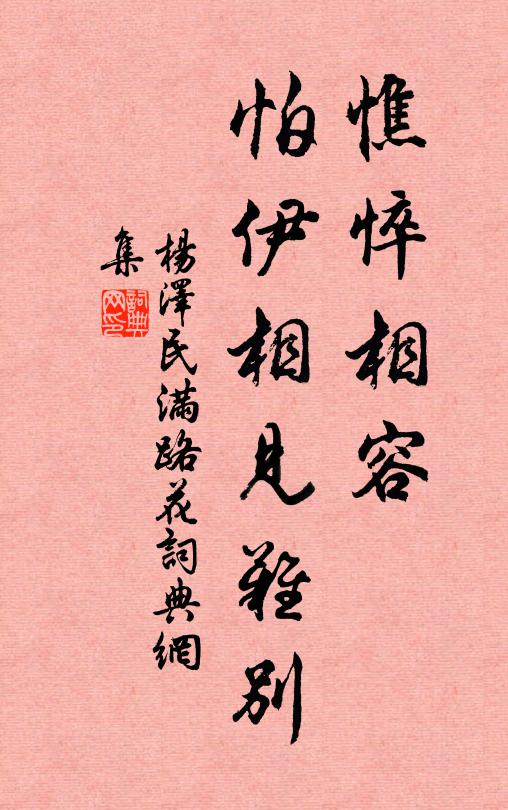 憔悴相容
怕伊相見難別
楊澤民滿路花詞典網
集
詞典
网印